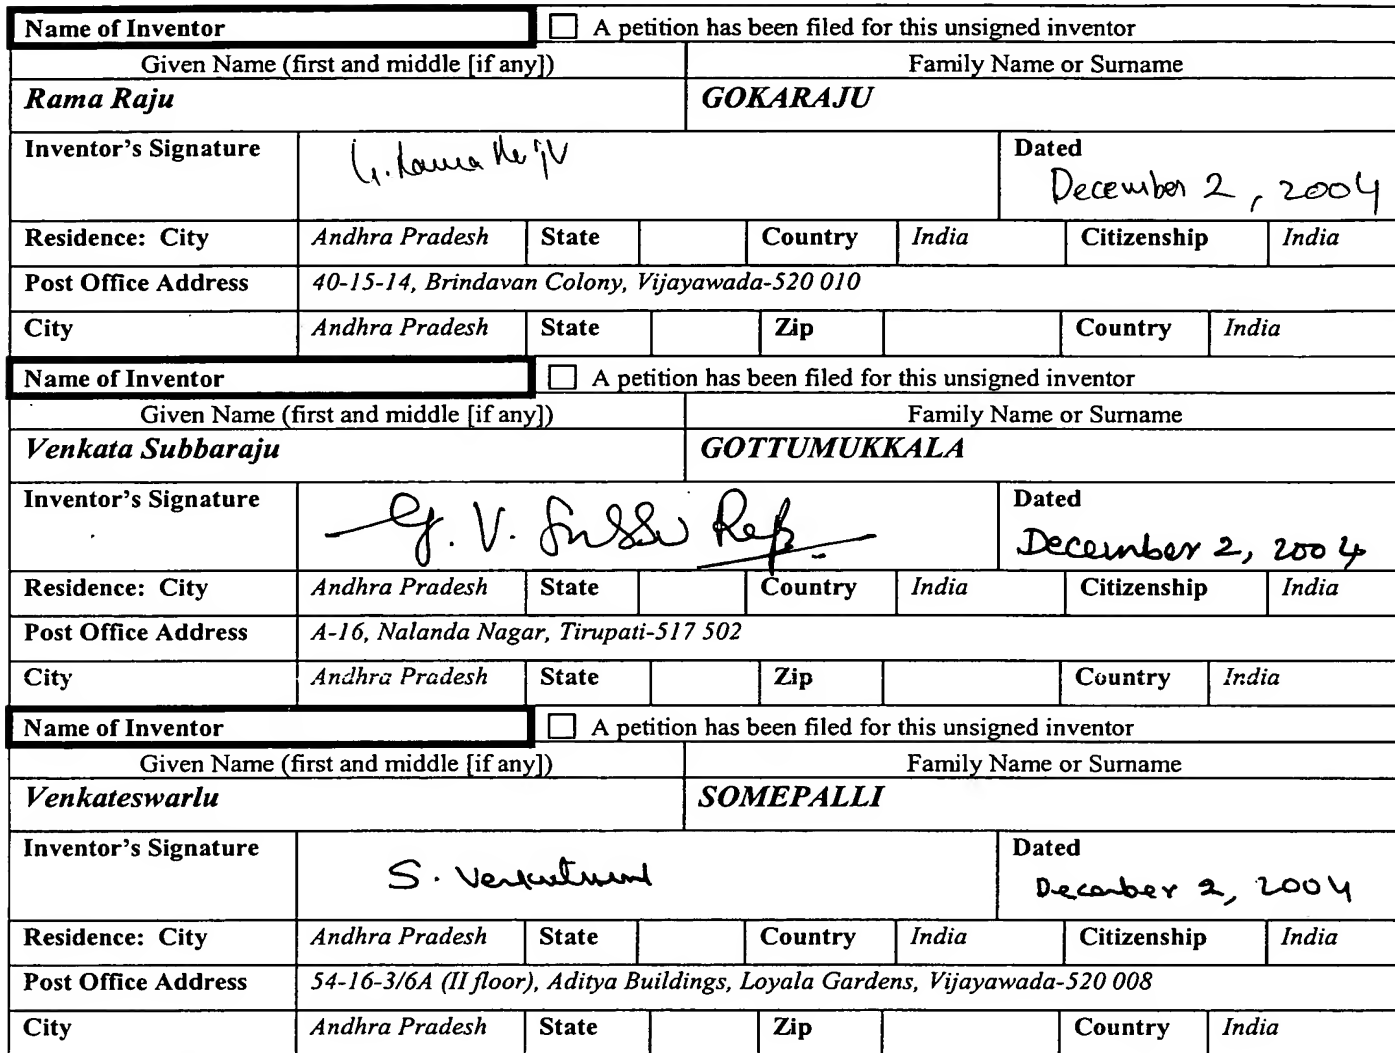 Name of Inventor ☐ A petition has been filed for this unsigned inventor
Given Name (first and middle [if any]) Family Name or Surname
Rama Raju GOKARAJU
Inventor's Signature G. Rama Raju Dated
December 2, 2004
Residence: City Andhra Pradesh State Country India Citizenship India
Post Office Address 40-15-14, Brindavan Colony, Vijayawada-520 010
City Andhra Pradesh State Zip Country India
Name of Inventor ☐ A petition has been filed for this unsigned inventor
Given Name (first and middle [if any]) Family Name or Surname
Venkata Subbaraju GOTTUMUKKALA
Inventor's Signature G. V. Dated
December 2, 2004
Residence: City Andhra Pradesh State Country India Citizenship India
Post Office Address A-16, Nalanda Nagar, Tirupati-517 502
City Andhra Pradesh State Zip Country India
Name of Inventor ☐ A petition has been filed for this unsigned inventor
Given Name (first and middle [if any]) Family Name or Surname
Venkateswarlu SOMEPALLI
Inventor's Signature S. Dated
December 2, 2004
Residence: City Andhra Pradesh State Country India Citizenship India
Post Office Address 54-16-3/6A (II floor), Aditya Buildings, Loyala Gardens, Vijayawada-520 008
City Andhra Pradesh State Zip Country India